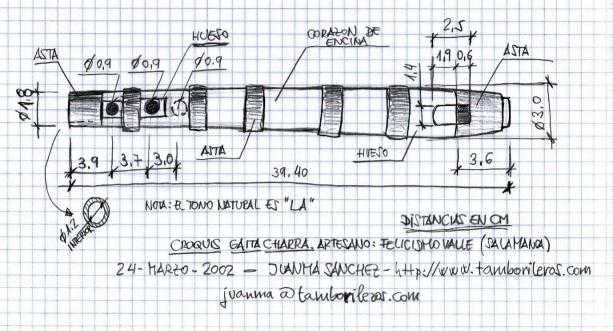 2,5
HUESO
CORAZON DE
ENCINA
1,9 0,6
ASTA
ASTA
Ø0,9
Ø0,9
Ø0.9
1,4
Ø1.8
Ø3,0
ASTA
HUESO
3.9
3.7
3.0
3,6
39.40
Ø1.2
INTERIOR
NOTA: EL TONO NATURAL ES "LA"
DISTANCIAS EN CM
CROQUIS GAITA CHARRA. ARTESANO: FELICISIMO VALLE (SALAMANCA)
24-MARZO-2002 — JUANMA SANCHEZ - http://www.tamborileros.com
juanma@tamborileros.com